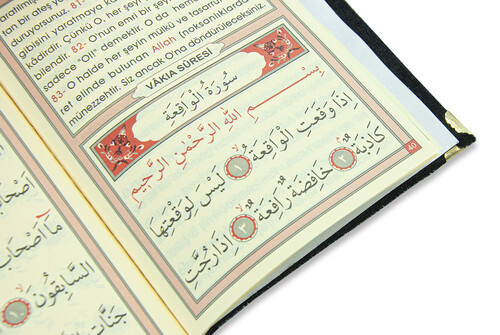 tan bir ateş
suruyorsunuz. 81-
gibisini yaratmaya k
kâdirdir. Çünkü O, her şeyi
bilendir. 82- O'nun emri bir şeyi
sadece "Ol!" demektir. O da hemen
83- O halde her şeyin mülkü ve tasarruf
ret elinde bulunan Allah (noksanlıklardan)
münezzehtir. Siz ancak O'na döndürüleceksiniz.
VÂKIA SÛRESİ
سُورَةُ الْوَاقِعَةِ
بِسْمِ اللّٰهِ الرَّحْمٰنِ الرَّحِيمِ
اِذَا وَقَعَتِ الْوَاقِعَةُ ١ لَيْسَ لِوَقْعَتِهَا
كَاذِبَةٌ ٢ خَافِضَةٌ رَافِعَةٌ ٣ اِذَا رُجَّتِ
40
اَصْحَابُ
مَٓا اَصْحَابُ
السَّابِقُونَ ١٠
جَنَّاتِ